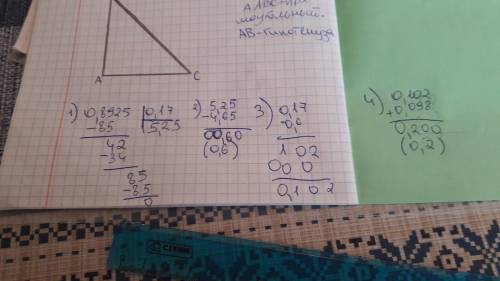 △ABC-пря
моугольный.
AB-гипотенуза
A
C
1) 0,8925 | 0,17
-85 | 5,25
42
-34
85
-85
0
2) 5,25
-4,65
00,60
(0,6)
3) 0,17
0,6
102
000
0,102
4) 0,102
+0,098
0,200
(0,2)